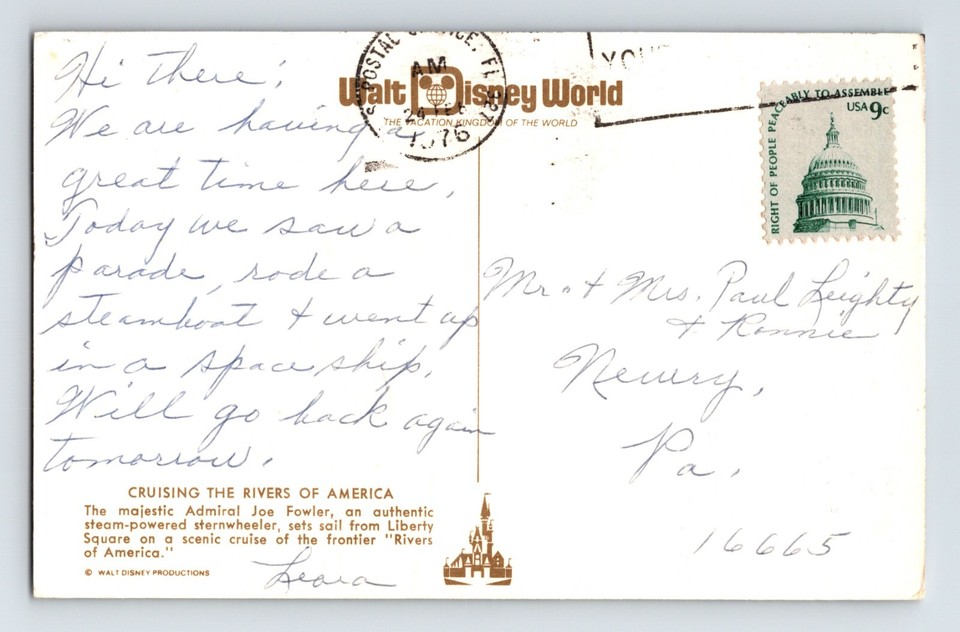 Hi There!
We are having a
great time here,
Today we saw a
parade, rode a
steamboat & went up
in a space ship.
Will go back again
tomorrow.
Leora
CRUISING THE RIVERS OF AMERICA
The majestic Admiral Joe Fowler, an authentic
steam-powered sternwheeler, sets sail from Liberty
Square on a scenic cruise of the frontier "Rivers
of America."
© WALT DISNEY PRODUCTIONS
Walt Disney World
THE VACATION KINGDOM OF THE WORLD
POSTAL
FL
AM
24
1976
YOU
RIGHT OF PEOPLE PEACEABLY TO ASSEMBLE
USA 9c
Mr. & Mrs. Paul Leighty
& Ronnie
Newry,
Pa.
16665